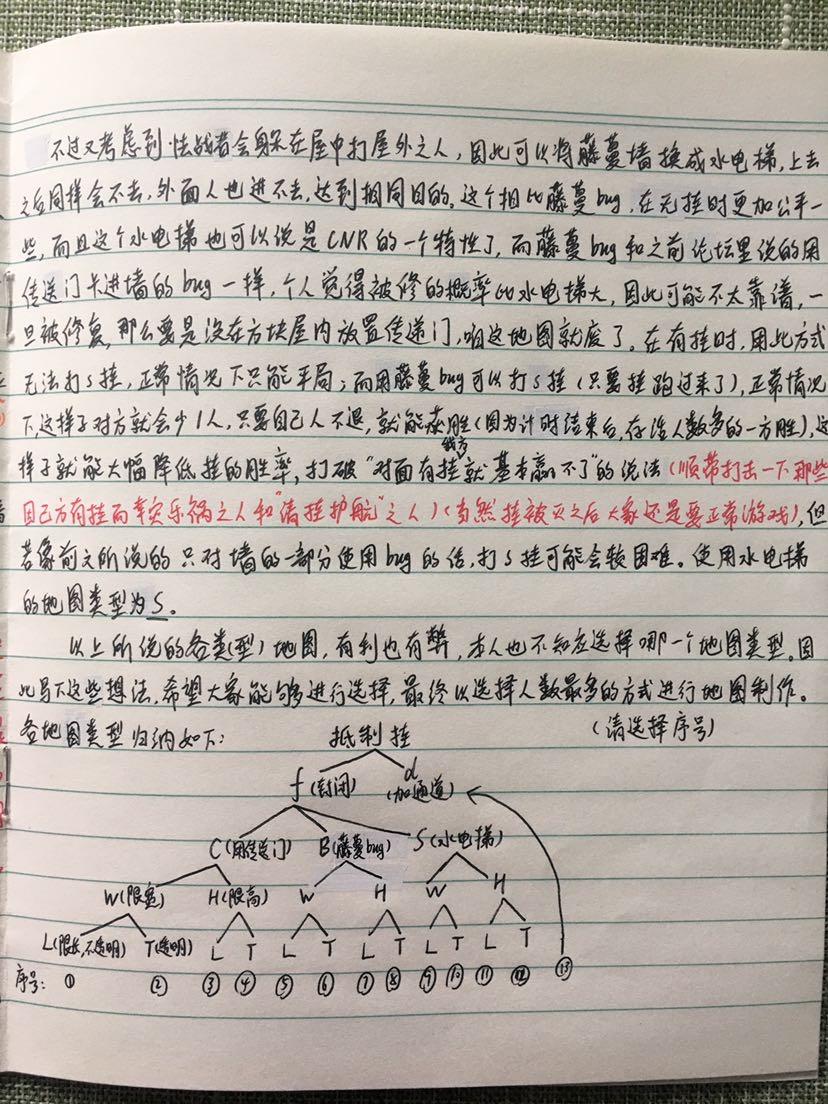 不过又考虑到怯战者会躲在屋中打屋外之人，因此可以将藤蔓墙换成水电梯，上去
之后同样会不去，外面人也进不去，达到相同目的。这个相比藤蔓bug，在无挂时更加公平一
些，而且这个水电梯也可以说是CNR的一个特性了，而藤蔓bug和之前论坛里说的用
传送门卡进墙的bug一样，个人觉得被修的概率比水电梯大，因此可能不太靠谱，一
旦被修复，那么要是没在方块屋内放置传递门，咱这地图就废了。在有挂时，用此方式
无法打S挂，正常情况下只能平局；而用藤蔓bug可以打S挂（只要挂跑过来了），正常情况
下，这样子对方就会少1人，只要自己人不退，就能获胜（因为计时结束后，存活人数多的一方胜），这
样子就能大幅降低挂的胜率，打破“对面有挂我方就基本赢不了”的说法（顺带打击一下那些
自己方有挂而幸灾乐祸之人和“请挂护航”之人）（当然挂被灭之后大家还是要正常游戏），但
若像前文所说的只对墙的一部分使用bug的话，打S挂可能会较困难。使用水电梯
的地图类型为S。
以上所说的各类(型)地图，有利也有弊，本人也不知应选择哪一个地图类型。因
此写下这些想法，希望大家能够进行选择，最终以选择人数最多的方式进行地图制作。
各地图类型归纳如下： 抵制挂 （请选择序号）
f(封闭) d(加通道)
C(用传送门) B(藤蔓bug) S(水电梯)
W(限宽) H(限高) W H W H
L(限长,不透明) T(透明) L T L T L T L T L T
序号： ① ② ③ ④ ⑤ ⑥ ⑦ ⑧ ⑨ ⑩ ⑪ ⑫ ⑬